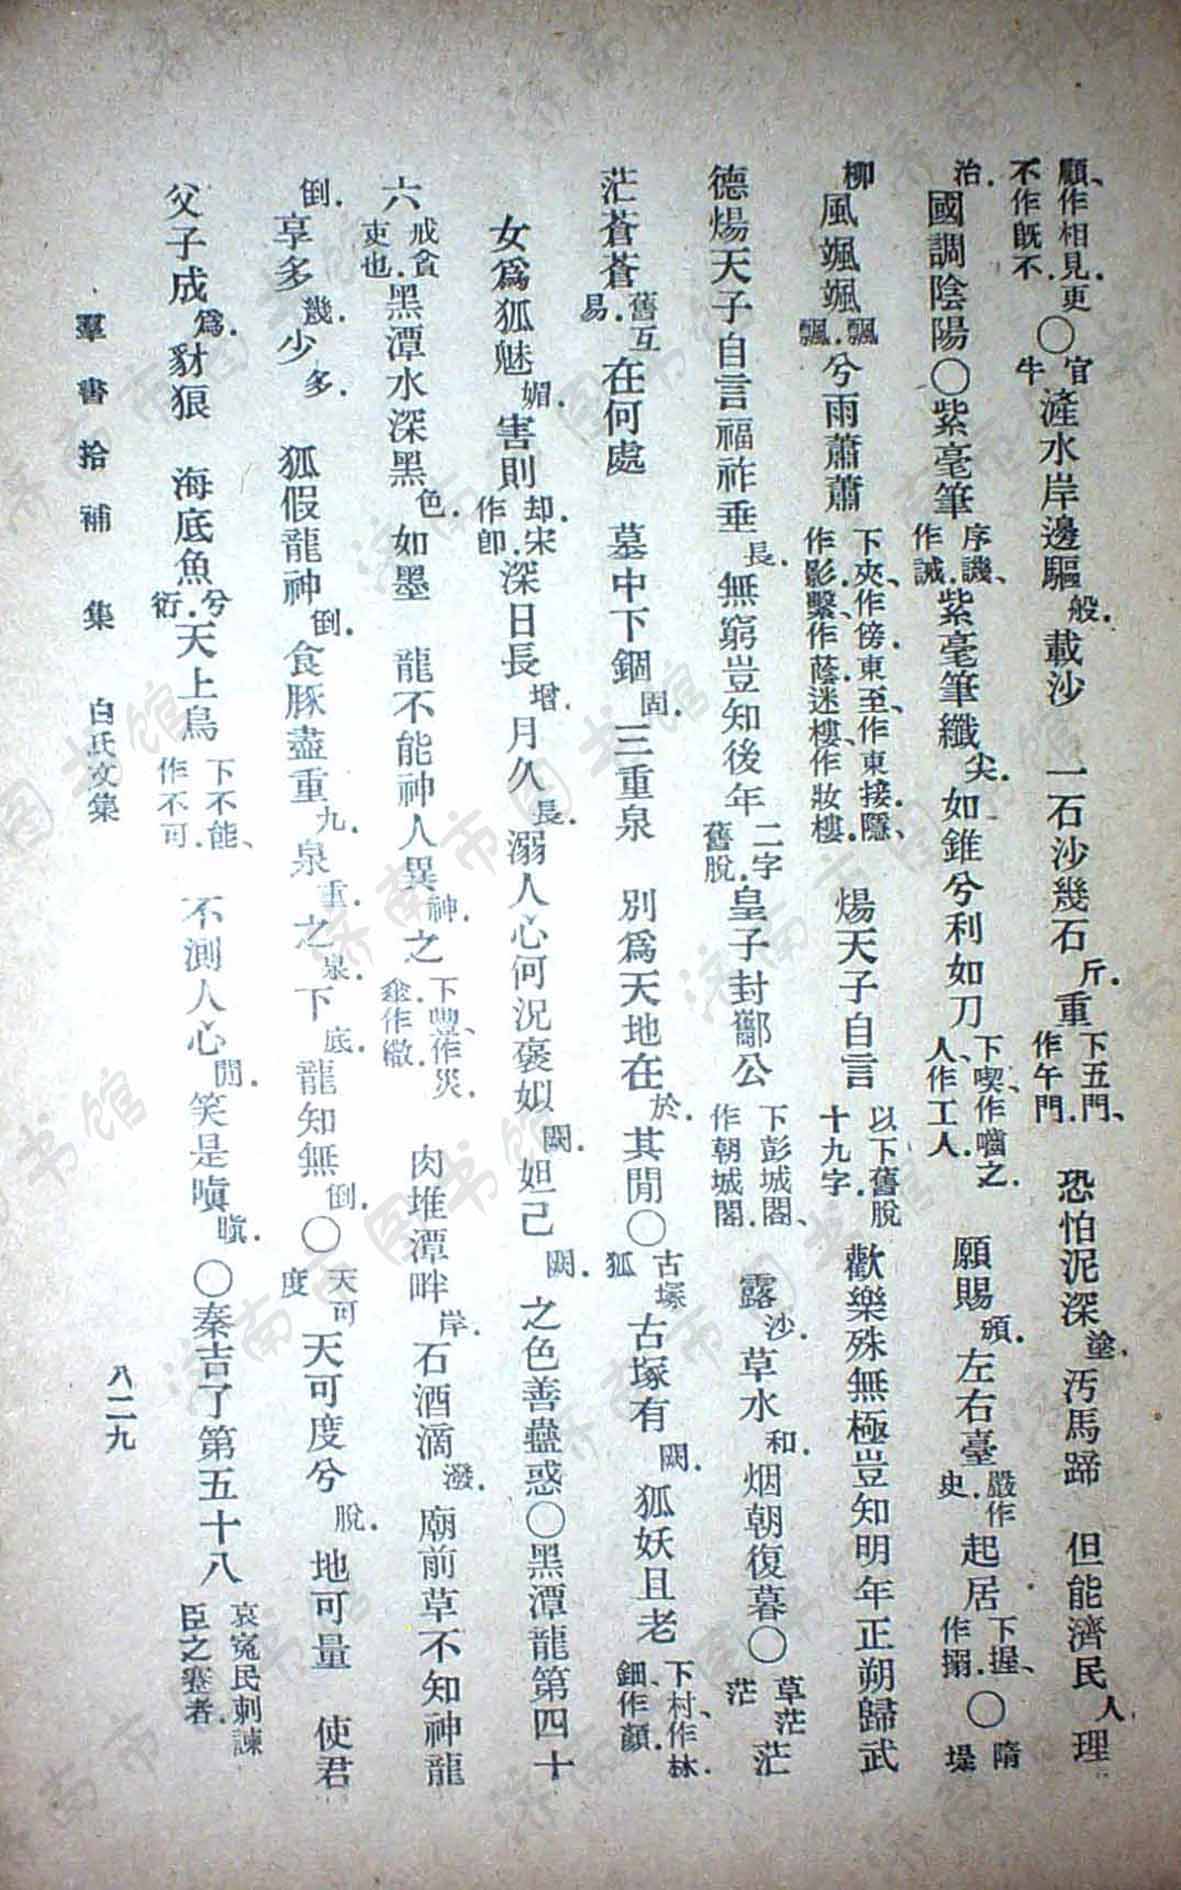 顧、作相見.更不作既不.〇官牛滻水岸邊驅般.載沙　一石沙幾石斤.重下五門、作午門.　恐怕泥深塗.汚馬蹄　但能濟民人.理
治.國調陰陽〇紫毫筆序譏、作誡.紫毫筆纖尖.如錐兮利如刀下喫、作嚙之.人、作工人.　願賜頒.左右臺嚴作史.起居下握、作搦.〇隋堤
柳風颯颯飄飄.兮雨蕭蕭下夾、作傍.東至、作東接.隱、作影.繫、作蔭.迷樓、作妝樓.　煬天子自言以下舊脫十九字.　歡樂殊無極豈知明年正朔歸武
德煬天子自言福祚垂長.無窮豈知後年二字舊脫.皇子封酅公下彭城閣、作朝城閣.　露沙.草水和.烟朝復暮〇草茫茫茫
茫蒼蒼舊互易.　在何處　墓中下錮固.三重泉　別爲天地在於.其閒〇古塚狐古塚有闕.狐妖且老下村、作林.鈿、作顏.
女爲狐魅媚.害則却.宋作卽.深日長增.月久長.溺人心何況褒姒闕.妲己闕.之色善蠱惑〇黑潭龍第四十
六戒貪吏也.黑潭水深黑色.如墨　龍不能神人異神.之下豐、作災.傘、作繖.　肉堆潭畔岸.石酒滴潑.廟前草不知神龍
倒.享多幾.少多.　狐假龍神倒.食豚盡重九.泉重.之泉.下底.龍知無倒.〇天可度天可度兮脫.　地可量　使君
父子成爲.豺狼　海底魚兮衍.天上鳥下不能、作不可.　不測人心閒.笑是嗔瞋.〇秦吉了第五十八哀冤民刺諫臣之蹇者.
羣書拾補　集　白氏文集　八二九